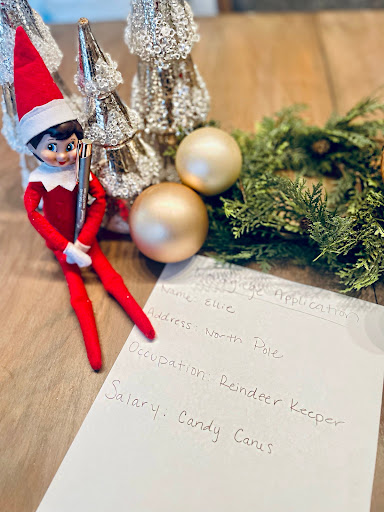 Application
Name: Ellie
Address: North Pole
Occupation: Reindeer Keeper
Salary: Candy Canes